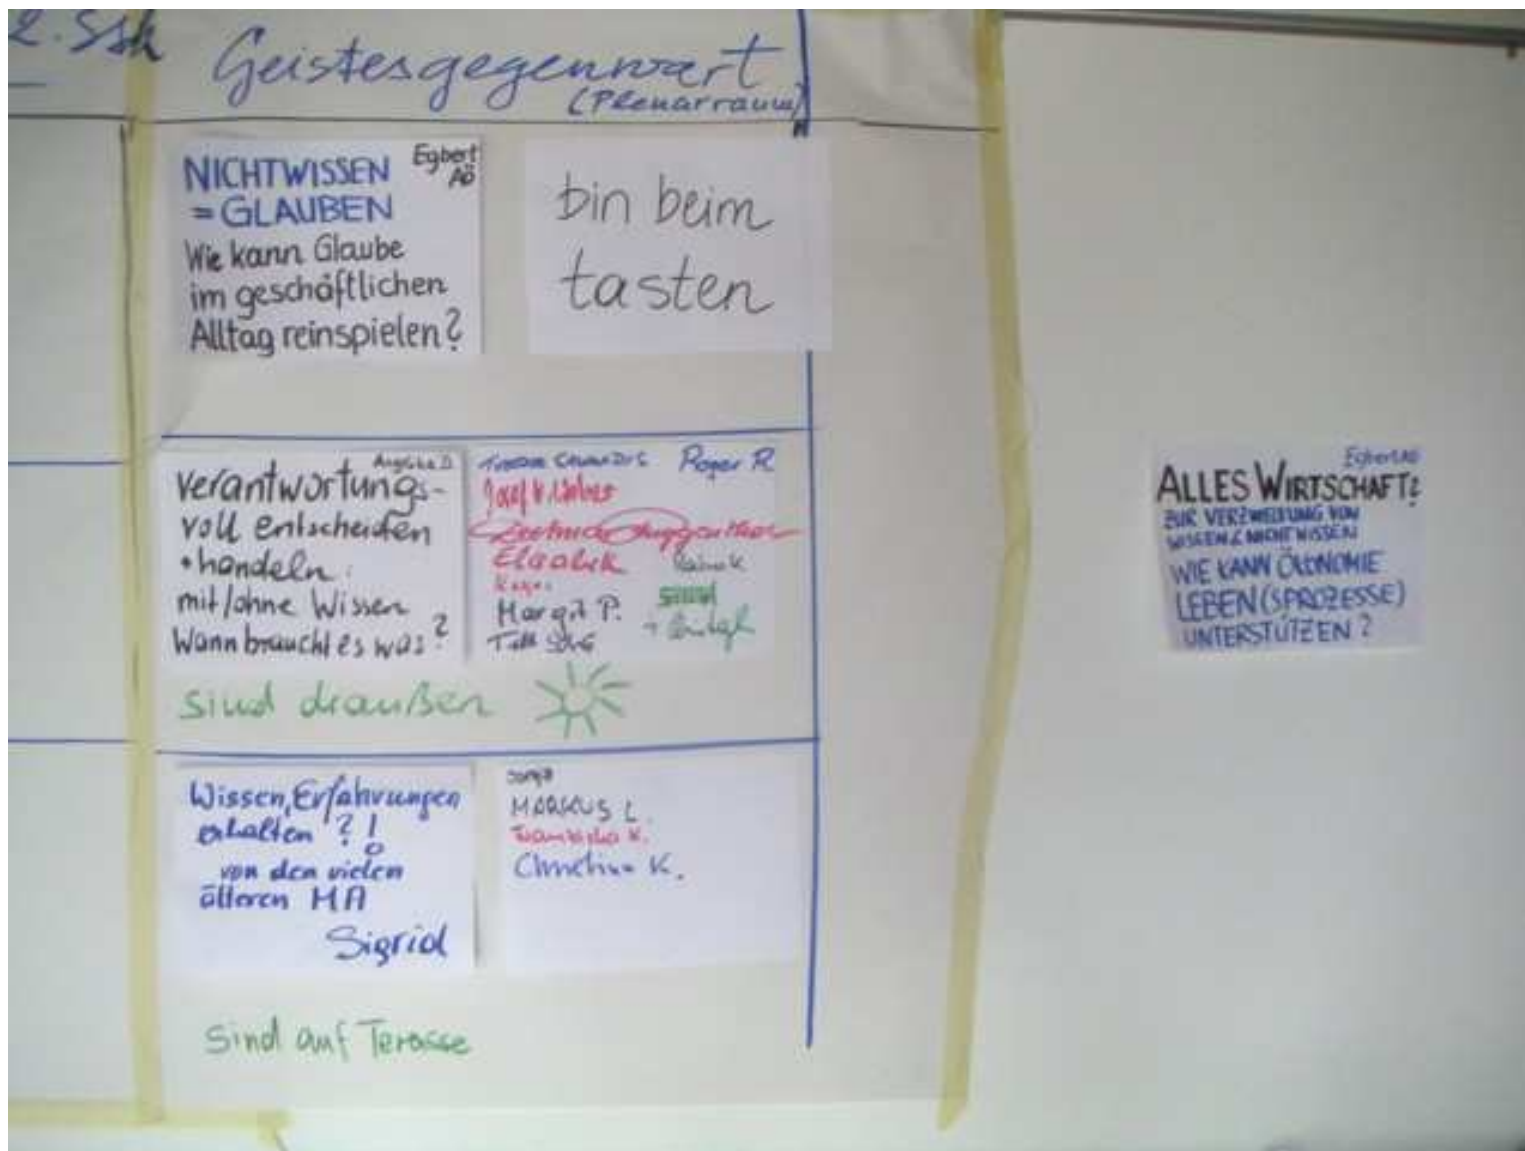 Geistesgegenwart
(Plenarraum)
NICHTWISSEN
= GLAUBEN
Egbert
AÖ
Wie kann Glaube
im geschäftlichen
Alltag reinspielen?
bin beim
tasten
Verantwortungs-
voll entscheiden
+ handeln
mit/ohne Wissen
Wann braucht es was?
Roger R
Elisabeth
Margit P.
sind draußen
Wissen, Erfahrungen
erhalten ?!
von den vielen
älteren MA
Sigrid
MARKUS L.
Franziska K.
Christina K.
sind auf Terasse
ALLES WIRTSCHAFT?
ZUR VERZWEIFLUNG VON
WISSEN & NICHTWISSEN
WIE KANN ÖKONOMIE
LEBEN(SPROZESSE)
UNTERSTÜTZEN?